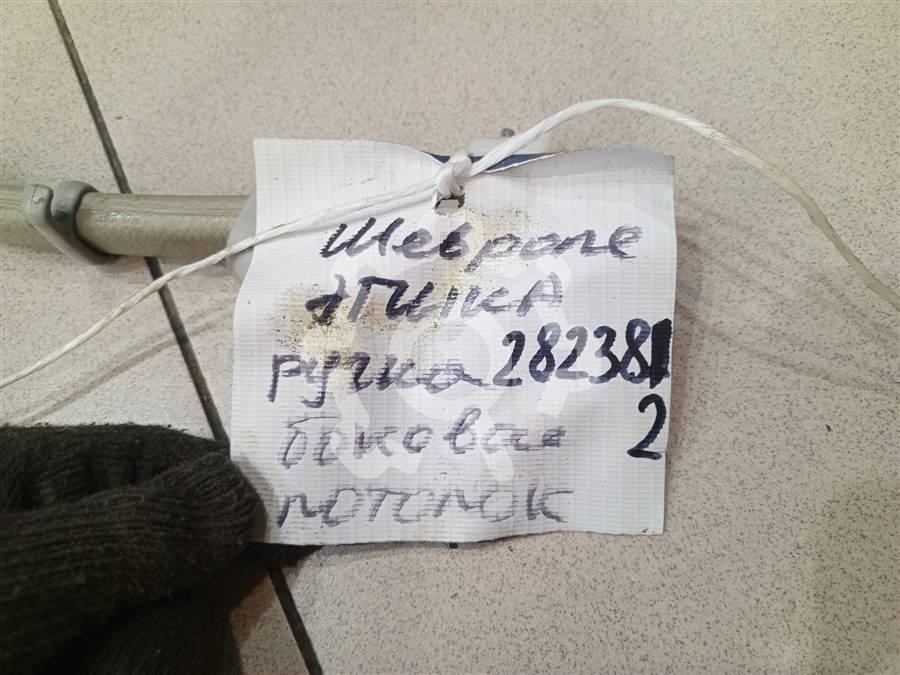 Шевроле
эпика
ручка 28238
2
боковая
потолок